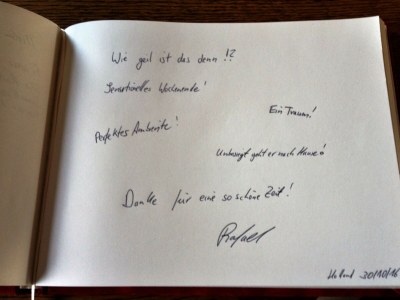 Wie geil ist das denn !?
Sensationelles Wochenende!
Ein Traum!
Perfektes Ambiente!
Unbesiegt geht er nach Hause!
Danke für eine so schöne Zeit!
Rafael